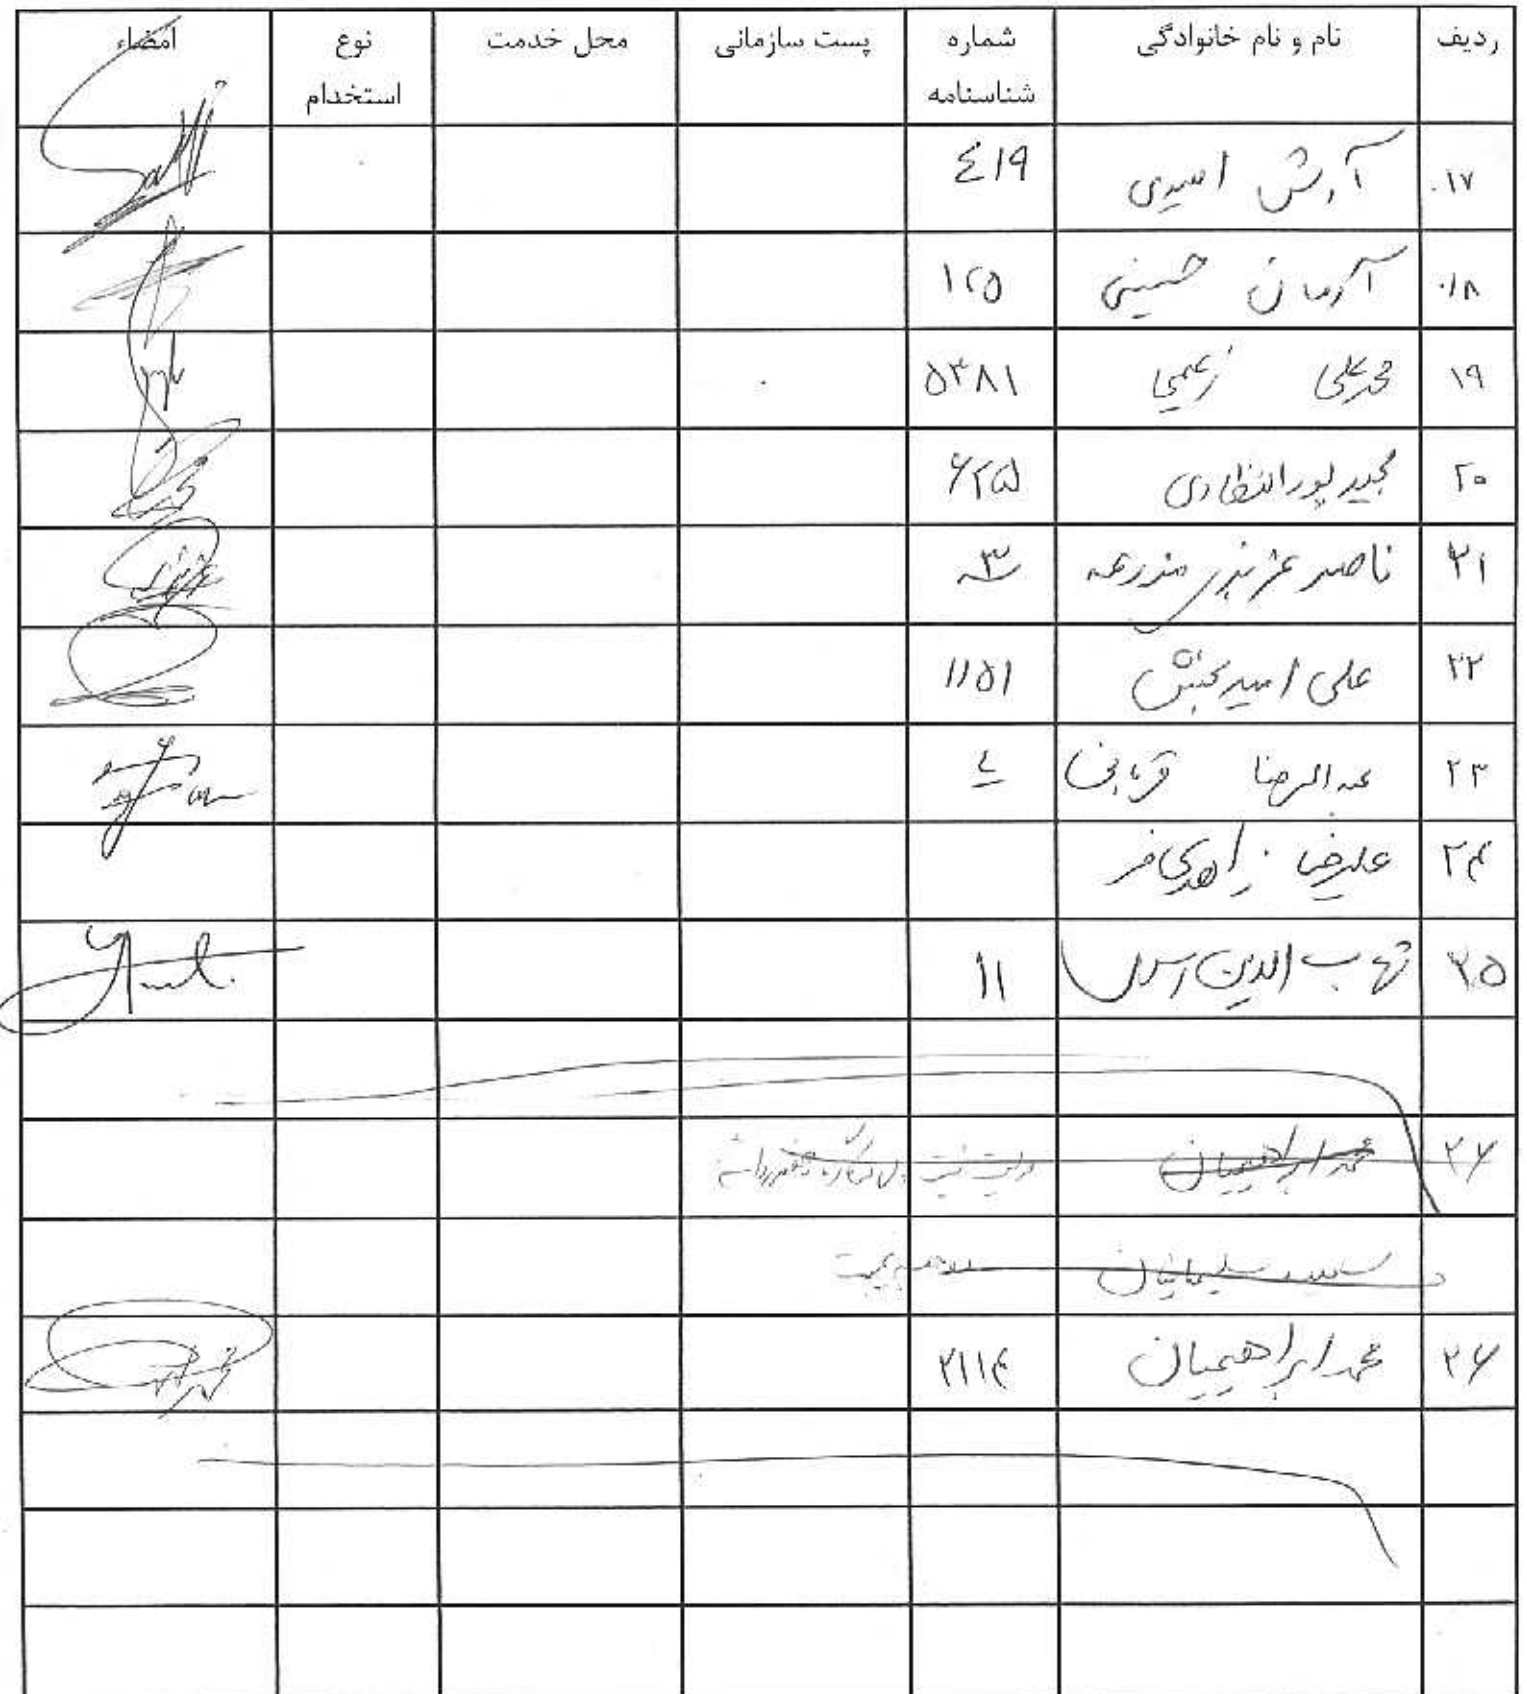 ردیف نام و نام خانوادگی شماره شناسنامه پست سازمانی محل خدمت نوع استخدام امضاء
۱۷ آرش امیدی ٤۱۹
۱۸ آرمان حسینی ۱۲۵
۱۹ محمدعلی زعیمی ۵۳۸۱
۲۰ مجید پورانتظاری ۶۲۵
۲۱ ناصر عزیزی مزرعه ۳
۲۲ علی امیدبخش ۱۱۵۱
۲۳ عبدالرضا قربانی ٤
۲۴ علیرضا زاهدی فر
۲۵ شهاب الدین ۱۱
۲۶ محمد ابراهیمیان
سعید سلیمانیان
۲۶ محمد ابراهیمیان ۲۱۱۴